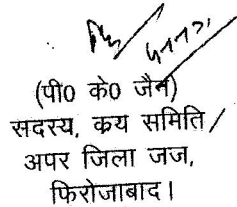 (पी0 के0 जैन)
सदस्य, क्रय समिति/
अपर जिला जज,
फिरोजाबाद।